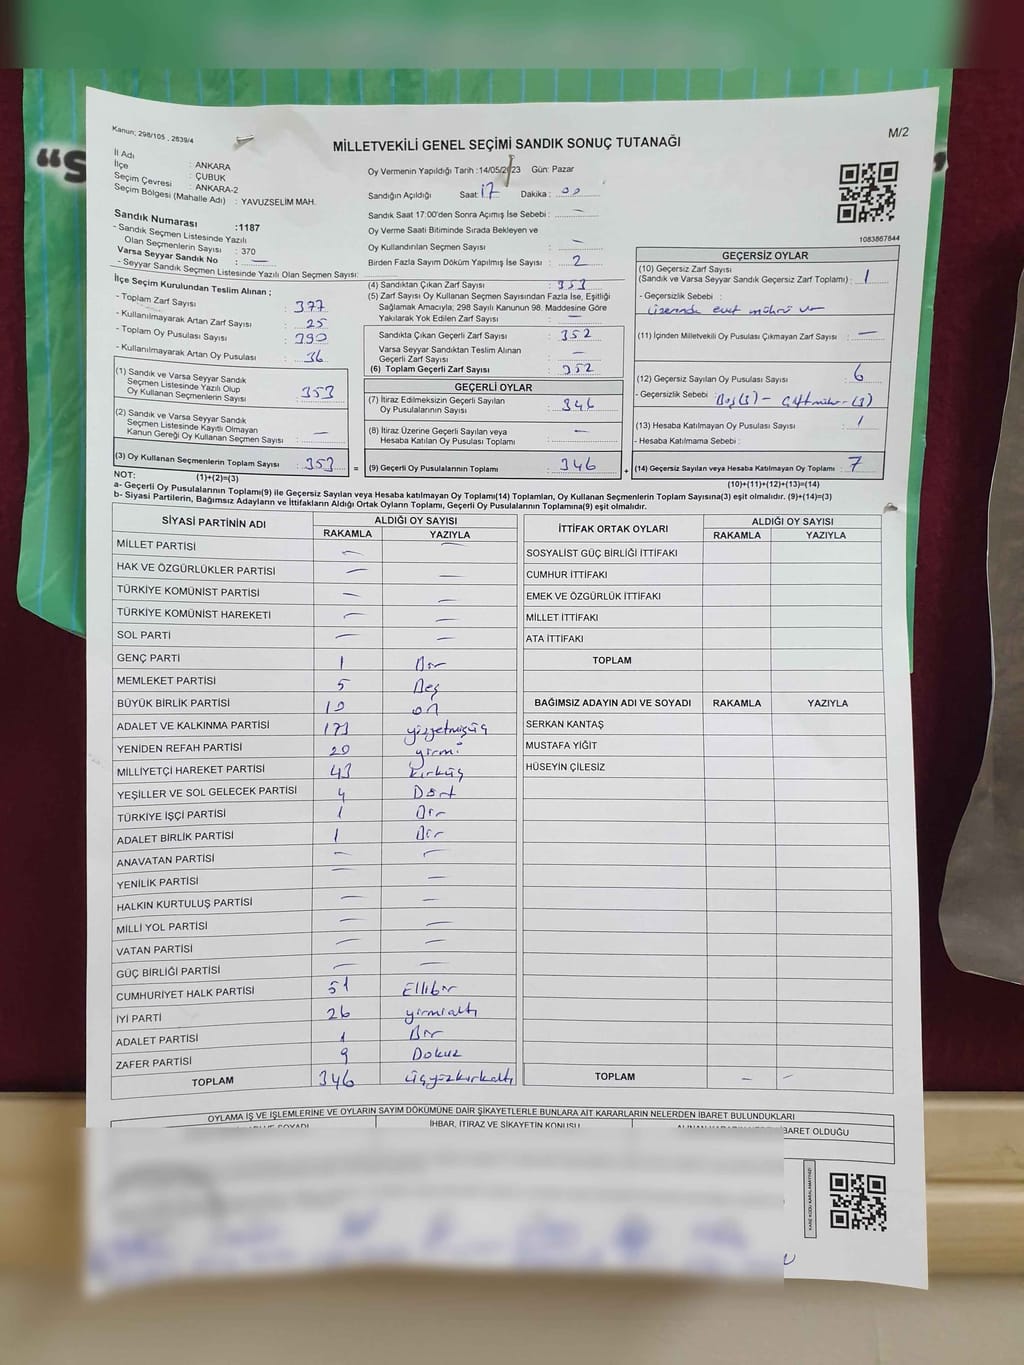 Kanun; 298/105 , 2839/4
MİLLETVEKİLİ GENEL SEÇİMİ SANDIK SONUÇ TUTANAĞI
M/2
İl Adı : ANKARA
İlçe : ÇUBUK
Seçim Çevresi : ANKARA-2
Seçim Bölgesi (Mahalle Adı) : YAVUZSELİM MAH.
Sandık Numarası :1187
- Sandık Seçmen Listesinde Yazılı
Olan Seçmenlerin Sayısı : 370
Varsa Seyyar Sandık No : —
- Seyyar Sandık Seçmen Listesinde Yazılı Olan Seçmen Sayısı:
İlçe Seçim Kurulundan Teslim Alınan ;
- Toplam Zarf Sayısı : 377
- Kullanılmayarak Artan Zarf Sayısı : 25
- Toplam Oy Pusulası Sayısı : 390
- Kullanılmayarak Artan Oy Pusulası : 36
(1) Sandık ve Varsa Seyyar Sandık
Seçmen Listesinde Yazılı Olup
Oy Kullanan Seçmenlerin Sayısı : 353
(2) Sandık ve Varsa Seyyar Sandık
Seçmen Listesinde Kayıtlı Olmayan
Kanun Gereği Oy Kullanan Seçmen Sayısı : —
(3) Oy Kullanan Seçmenlerin Toplam Sayısı : 353 =
(1)+(2)=(3)
Oy Vermenin Yapıldığı Tarih :14/05/2023 Gün: Pazar
Sandığın Açıldığı Saat: 17 Dakika : 00
Sandık Saat 17:00'den Sonra Açımış İse Sebebi : —
Oy Verme Saati Bitiminde Sırada Bekleyen ve
Oy Kullandırılan Seçmen Sayısı : —
Birden Fazla Sayım Döküm Yapılmış İse Sayısı : 2
(4) Sandıktan Çıkan Zarf Sayısı : 353
(5) Zarf Sayısı Oy Kullanan Seçmen Sayısından Fazla İse, Eşitliği
Sağlamak Amacıyla; 298 Sayılı Kanunun 98. Maddesine Göre
Yakılarak Yok Edilen Zarf Sayısı : —
Sandıkta Çıkan Geçerli Zarf Sayısı : 352
Varsa Seyyar Sandıktan Teslim Alınan
Geçerli Zarf Sayısı : —
(6) Toplam Geçerli Zarf Sayısı : 352
GEÇERLİ OYLAR
(7) İtiraz Edilmeksizin Geçerli Sayılan
Oy Pusulalarının Sayısı : 346
(8) İtiraz Üzerine Geçerli Sayılan veya
Hesaba Katılan Oy Pusulası Toplamı : —
(9) Geçerli Oy Pusulalarının Toplamı : 346 +
1083867844
GEÇERSİZ OYLAR
(10) Geçersiz Zarf Sayısı
(Sandık ve Varsa Seyyar Sandık Geçersiz Zarf Toplamı) : 1
- Geçersizlik Sebebi :
üzerinde evet mührü var
(11) İçinden Milletvekili Oy Pusulası Çıkmayan Zarf Sayısı : —
(12) Geçersiz Sayılan Oy Pusulası Sayısı : 6
- Geçersizlik Sebebi : Boş (3) - Çift mühür (3)
(13) Hesaba Katılmayan Oy Pusulası Sayısı : 1
- Hesaba Katılmama Sebebi :
(14) Geçersiz Sayılan veya Hesaba Katılmayan Oy Toplamı : 7
(10)+(11)+(12)+(13)=(14)
NOT:
a- Geçerli Oy Pusulalarının Toplamı(9) ile Geçersiz Sayılan veya Hesaba katılmayan Oy Toplamı(14) Toplamları, Oy Kullanan Seçmenlerin Toplam Sayısına(3) eşit olmalıdır. (9)+(14)=(3)
b- Siyasi Partilerin, Bağımsız Adayların ve İttifakların Aldığı Ortak Oyların Toplamı, Geçerli Oy Pusulalarının Toplamına(9) eşit olmalıdır.
SİYASİ PARTİNİN ADI ALDIĞI OY SAYISI
RAKAMLA YAZIYLA
MİLLET PARTİSİ — —
HAK VE ÖZGÜRLÜKLER PARTİSİ — —
TÜRKİYE KOMÜNİST PARTİSİ — —
TÜRKİYE KOMÜNİST HAREKETİ — —
SOL PARTİ — —
GENÇ PARTİ 1 Bir
MEMLEKET PARTİSİ 5 Beş
BÜYÜK BİRLİK PARTİSİ 10 on
ADALET VE KALKINMA PARTİSİ 173 yüzyetmişüç
YENİDEN REFAH PARTİSİ 20 yirmi
MİLLİYETÇİ HAREKET PARTİSİ 43 kırküç
YEŞİLLER VE SOL GELECEK PARTİSİ 4 Dört
TÜRKİYE İŞÇİ PARTİSİ 1 Bir
ADALET BİRLİK PARTİSİ 1 Bir
ANAVATAN PARTİSİ — —
YENİLİK PARTİSİ — —
HALKIN KURTULUŞ PARTİSİ — —
MİLLİ YOL PARTİSİ — —
VATAN PARTİSİ — —
GÜÇ BİRLİĞİ PARTİSİ — —
CUMHURİYET HALK PARTİSİ 51 Ellibir
İYİ PARTİ 26 yirmialtı
ADALET PARTİSİ 1 Bir
ZAFER PARTİSİ 9 Dokuz
TOPLAM 346 üçyüzkırkaltı
İTTİFAK ORTAK OYLARI ALDIĞI OY SAYISI
RAKAMLA YAZIYLA
SOSYALİST GÜÇ BİRLİĞİ İTTİFAKI
CUMHUR İTTİFAKI
EMEK VE ÖZGÜRLÜK İTTİFAKI
MİLLET İTTİFAKI
ATA İTTİFAKI
TOPLAM
BAĞIMSIZ ADAYIN ADI VE SOYADI RAKAMLA YAZIYLA
SERKAN KANTAŞ
MUSTAFA YİĞİT
HÜSEYİN ÇİLESİZ
TOPLAM — —
OYLAMA İŞ VE İŞLEMLERİNE VE OYLARIN SAYIM DÖKÜMÜNE DAİR ŞİKAYETLERLE BUNLARA AİT KARARLARIN NELERDEN İBARET BULUNDUKLARI
İHBAR, İTİRAZ VE ŞİKAYETİN KONUSU